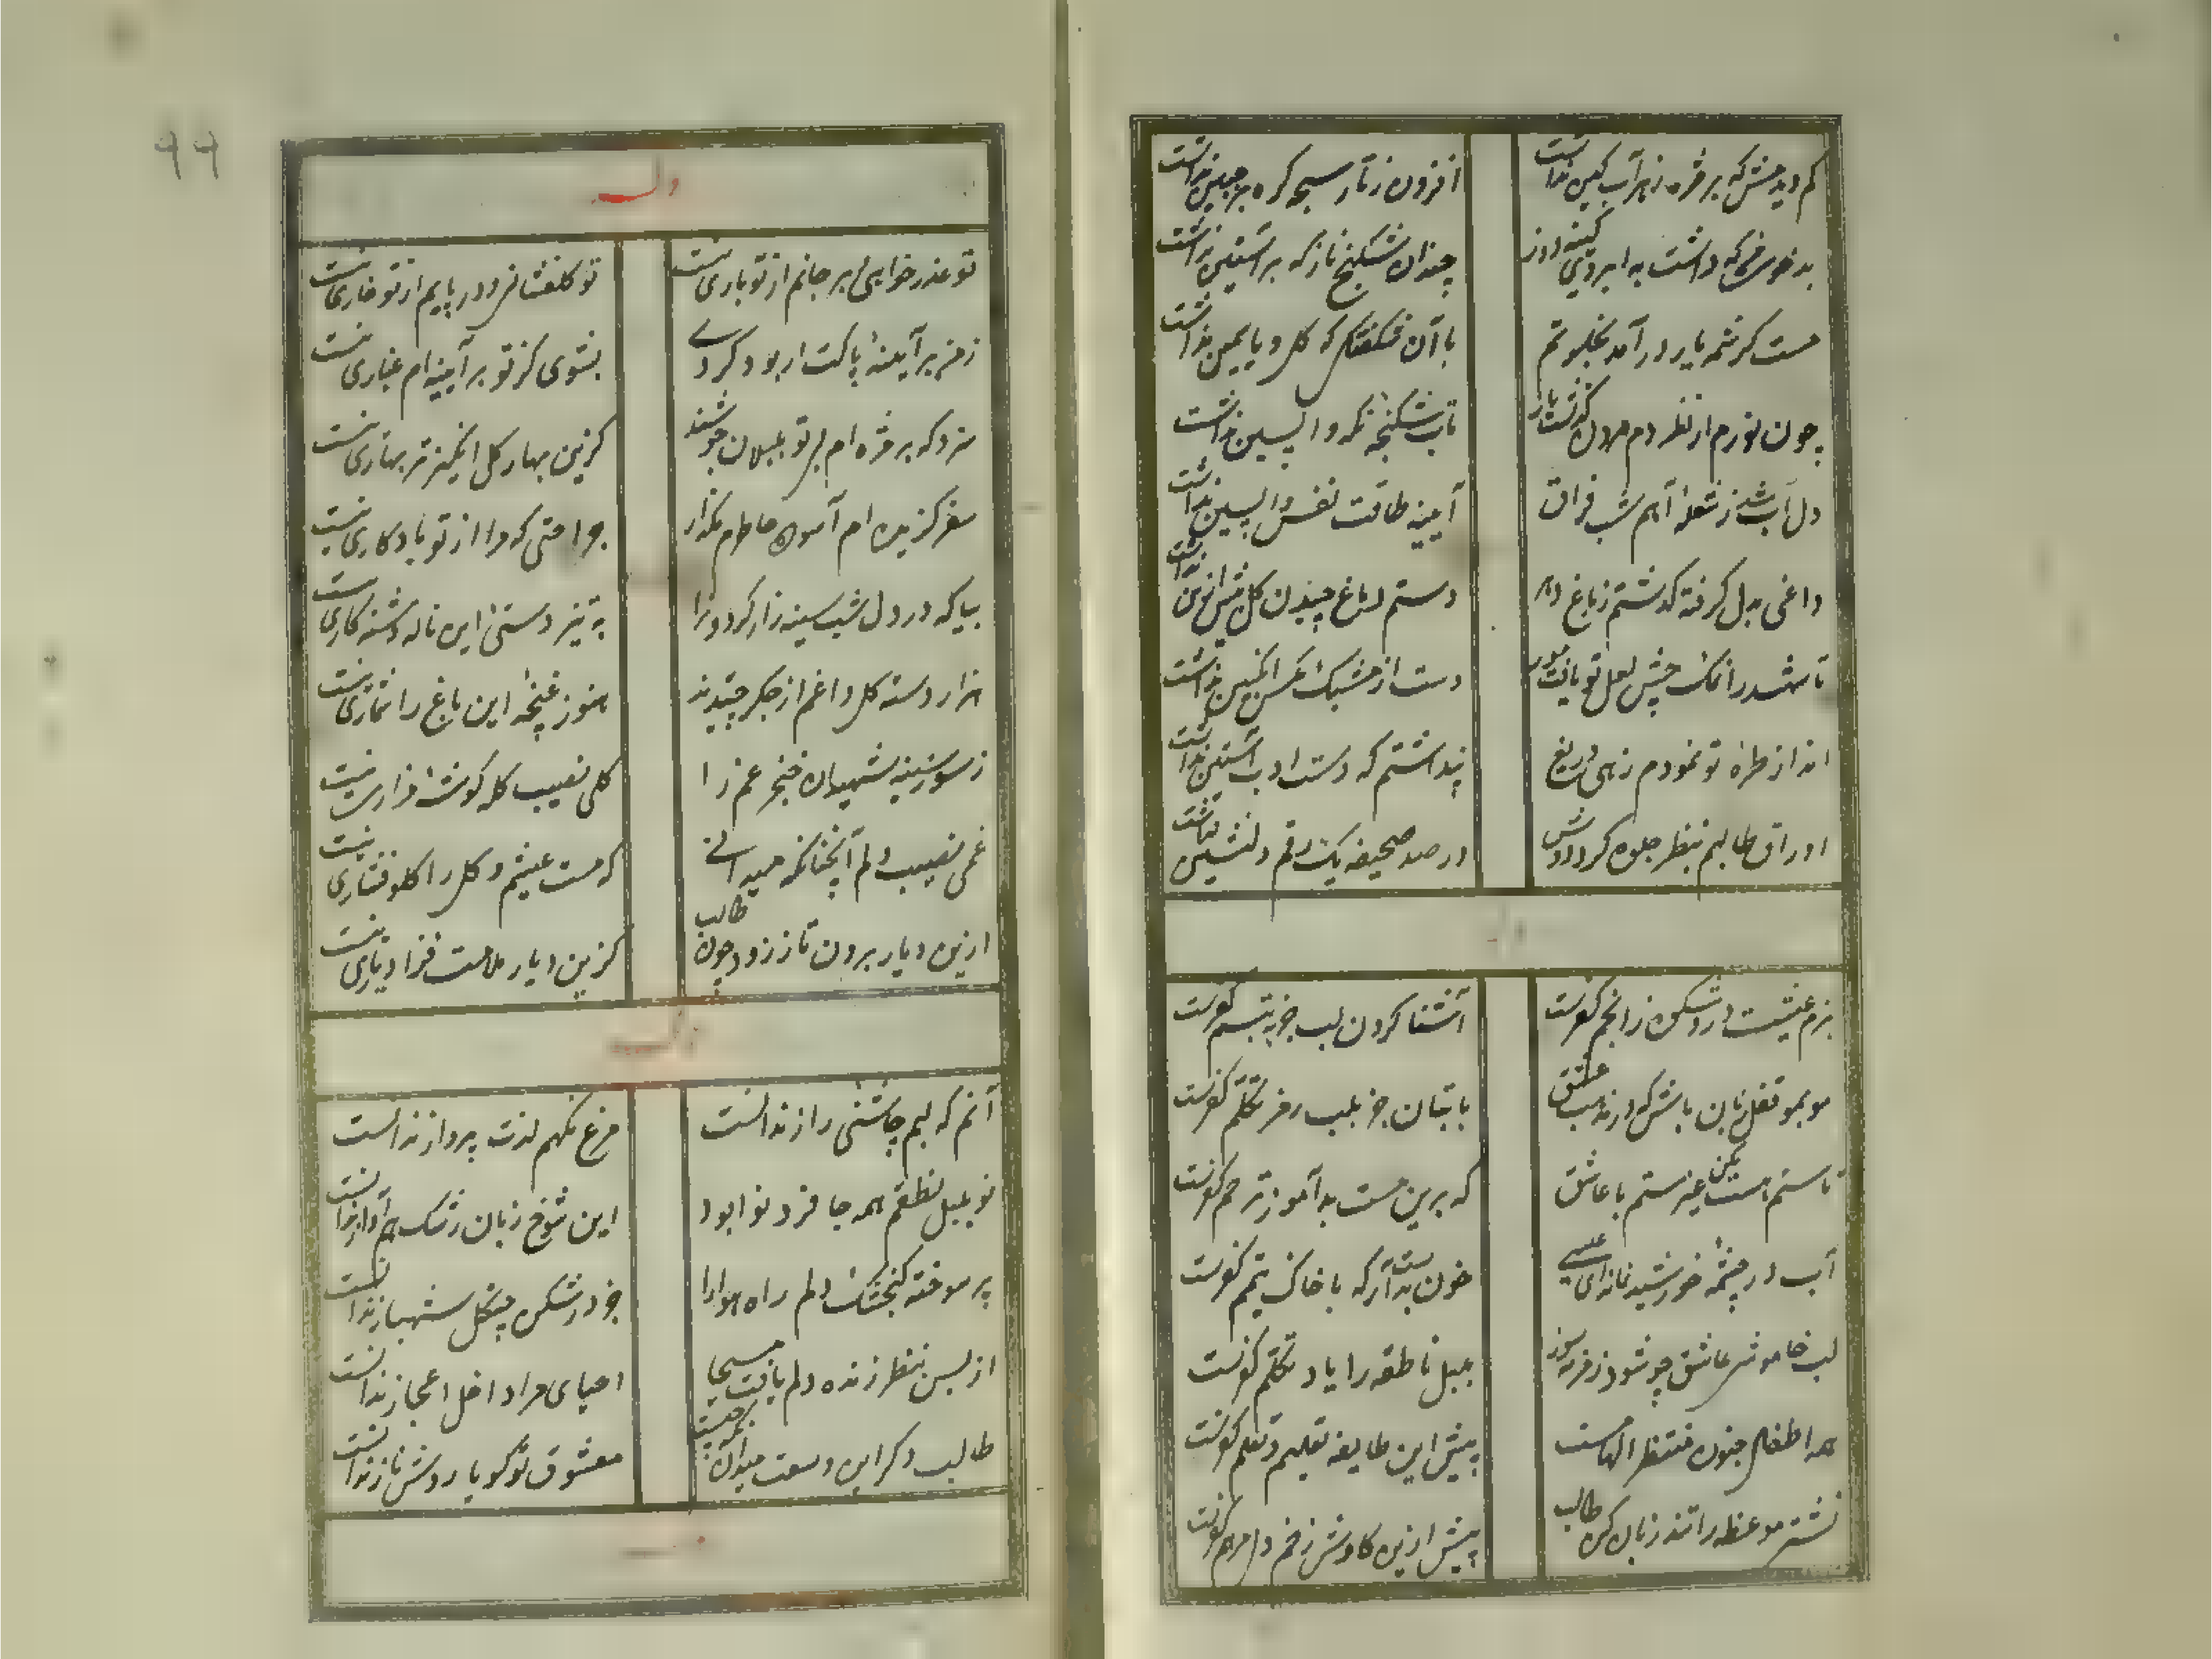 کم دیدمش که بر مژه زهرآب کین نداشت
افزون ز تار سبحه گره بر جبین نداشت
چندان شکنج ناز که بر آستین نداشت
مست کرشمه یار درآمد بخلوتم
با آن شکفتگی که گل و یاسمین نداشت
چون نورم از نظر دم مردن گذشت یار
تاب شکنجه نگه واپسین نداشت
دل آب شد ز شعله آهم شب فراق
آیینه طاقت نفس واپسین نداشت
داغی بدل گرفته گذشتم ز باغ دهر
دستم دماغ چیدن گل بیش ازین نداشت
تا شهد را نمک چش لعل تو یافت
دست از مشبک مگس انگبین نداشت
انداز طره تو نمودم زهی دریغ
پنداشتم که دست ادب آستین نداشت
اوراق طالبم بنظر جلوه کرد دوش
در صد صحیفه یک رقم دلنشین نداشت
وله
بزم عیشست درو شکوه ز انجم کفرست
آشنا کردن لب جز به تبسم کفرست
موبمو قفل زبان باش که در مذهب عشق
با بتان جز بلب رمز تکلم کفرست
تا ستم هست مکن غیر ستم با عاشق
که برین مست بدآموز ترحم کفرست
آب در چشمه خورشید نمانده ای عیسی
خون بدست آر که با خاک تیمم کفرست
لب خاموشی عاشق چو شود زمزمه سوز
بلبل ناطقه را یاد تکلم کفرست
همه اطفال جنون منتظر الهامست
پیش این طایفه تعلیم و تعلم کفرست
نشتر موعظه را تند زبان کن طالب
بیش ازین کاوش زخم دل مردم کفرست
۹۹
وله
تو عذرخواهی و بر جانم از تو باری نیست
تو گلفشانی و در پایم از تو خاری نیست
ز من بر آیینه پاکت ار بود گردی
بشوی کز تو بر آیینه ام غباری نیست
سزد که بر مژه ام بی تو بلبلان جوشند
کزین بهار گل انگیزتر بهاری نیست
سفر گزیده ام آسوده خاطرم مگذار
جراحتی که مرا از تو یادگاری نیست
بیا که در دل شب سینه زار گردون را
به تیز دستی این ناله دشنه کاری نیست
هزار دسته گل داغم از جگر چیدند
هنوز غنچه این باغ را شماری نیست
ز سوز سینه شهیدان خنجر غم را
گلی نصیب کله گوشه مزاری نیست
غمی نصیب دلم آنچنانکه میدانی
که مست عیشم و گل را گلو فشاری نیست
ازین دیار برون تاز زود چون طالب
کزین دیار ملامت فزا دیاری نیست
وله
آنم که لبم چاشنی راز ندانست
مرغ نگهم لذت پرواز ندانست
نو بلبل نطقم همه جا فرد نوا بود
این شوخ زبان رشک هم آواز ندانست
پر سوخته گنجشک دلم راه هوا را
جز در شکن چنگل شهباز ندانست
از بس بنظر زنده دلم یافت مسیحا
احیای مرا داخل اعجاز ندانست
طالب دگر این وسعت میدان نگه چیست
معشوق تو گویا روش ناز ندانست
وله